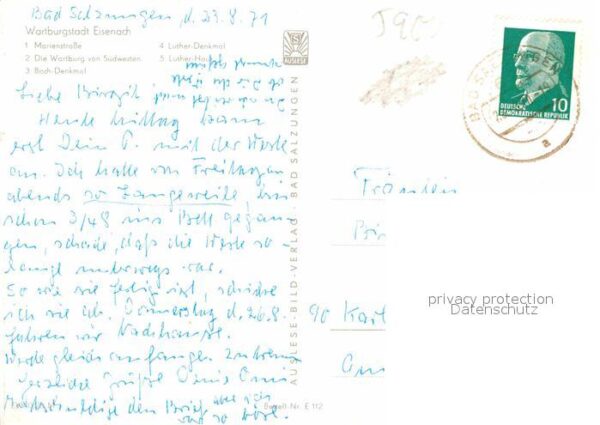 Bad Salzungen, d. 23.8.71
Wartburgstadt Eisenach
1 Marienstraße
2 Die Wartburg von Südwesten
3 Bach-Denkmal
4 Luther-Denkmal
5 Luther-Haus
AUSLESE
Liebe Birgit
Heute Mittag kam
erst Dein P. mit der Weste
an. Ich hatte von Freitag
abends so Langeweile, bin
schon 3/4 8 ins Bett gegan
gen, schade, daß die Weste so
lange unterwegs war.
So wie sie fertig ist, schicke
ich sie ab. Donnerstag d. 26.8.
fahren wir Nachhause.
Werde gleich anfangen zu
herzliche Grüße Deine Omi
Entschuldige den Brief, aber ich
war so
AUSLESE-BILD-VERLAG · BAD SALZUNGEN
Bestell-Nr. E 112
DEUTSCHE
DEMOKRATISCHE REPUBLIK
10
BAD SALZUNGEN
a
Fräulein
90 Karl
privacy protection
Datenschutz